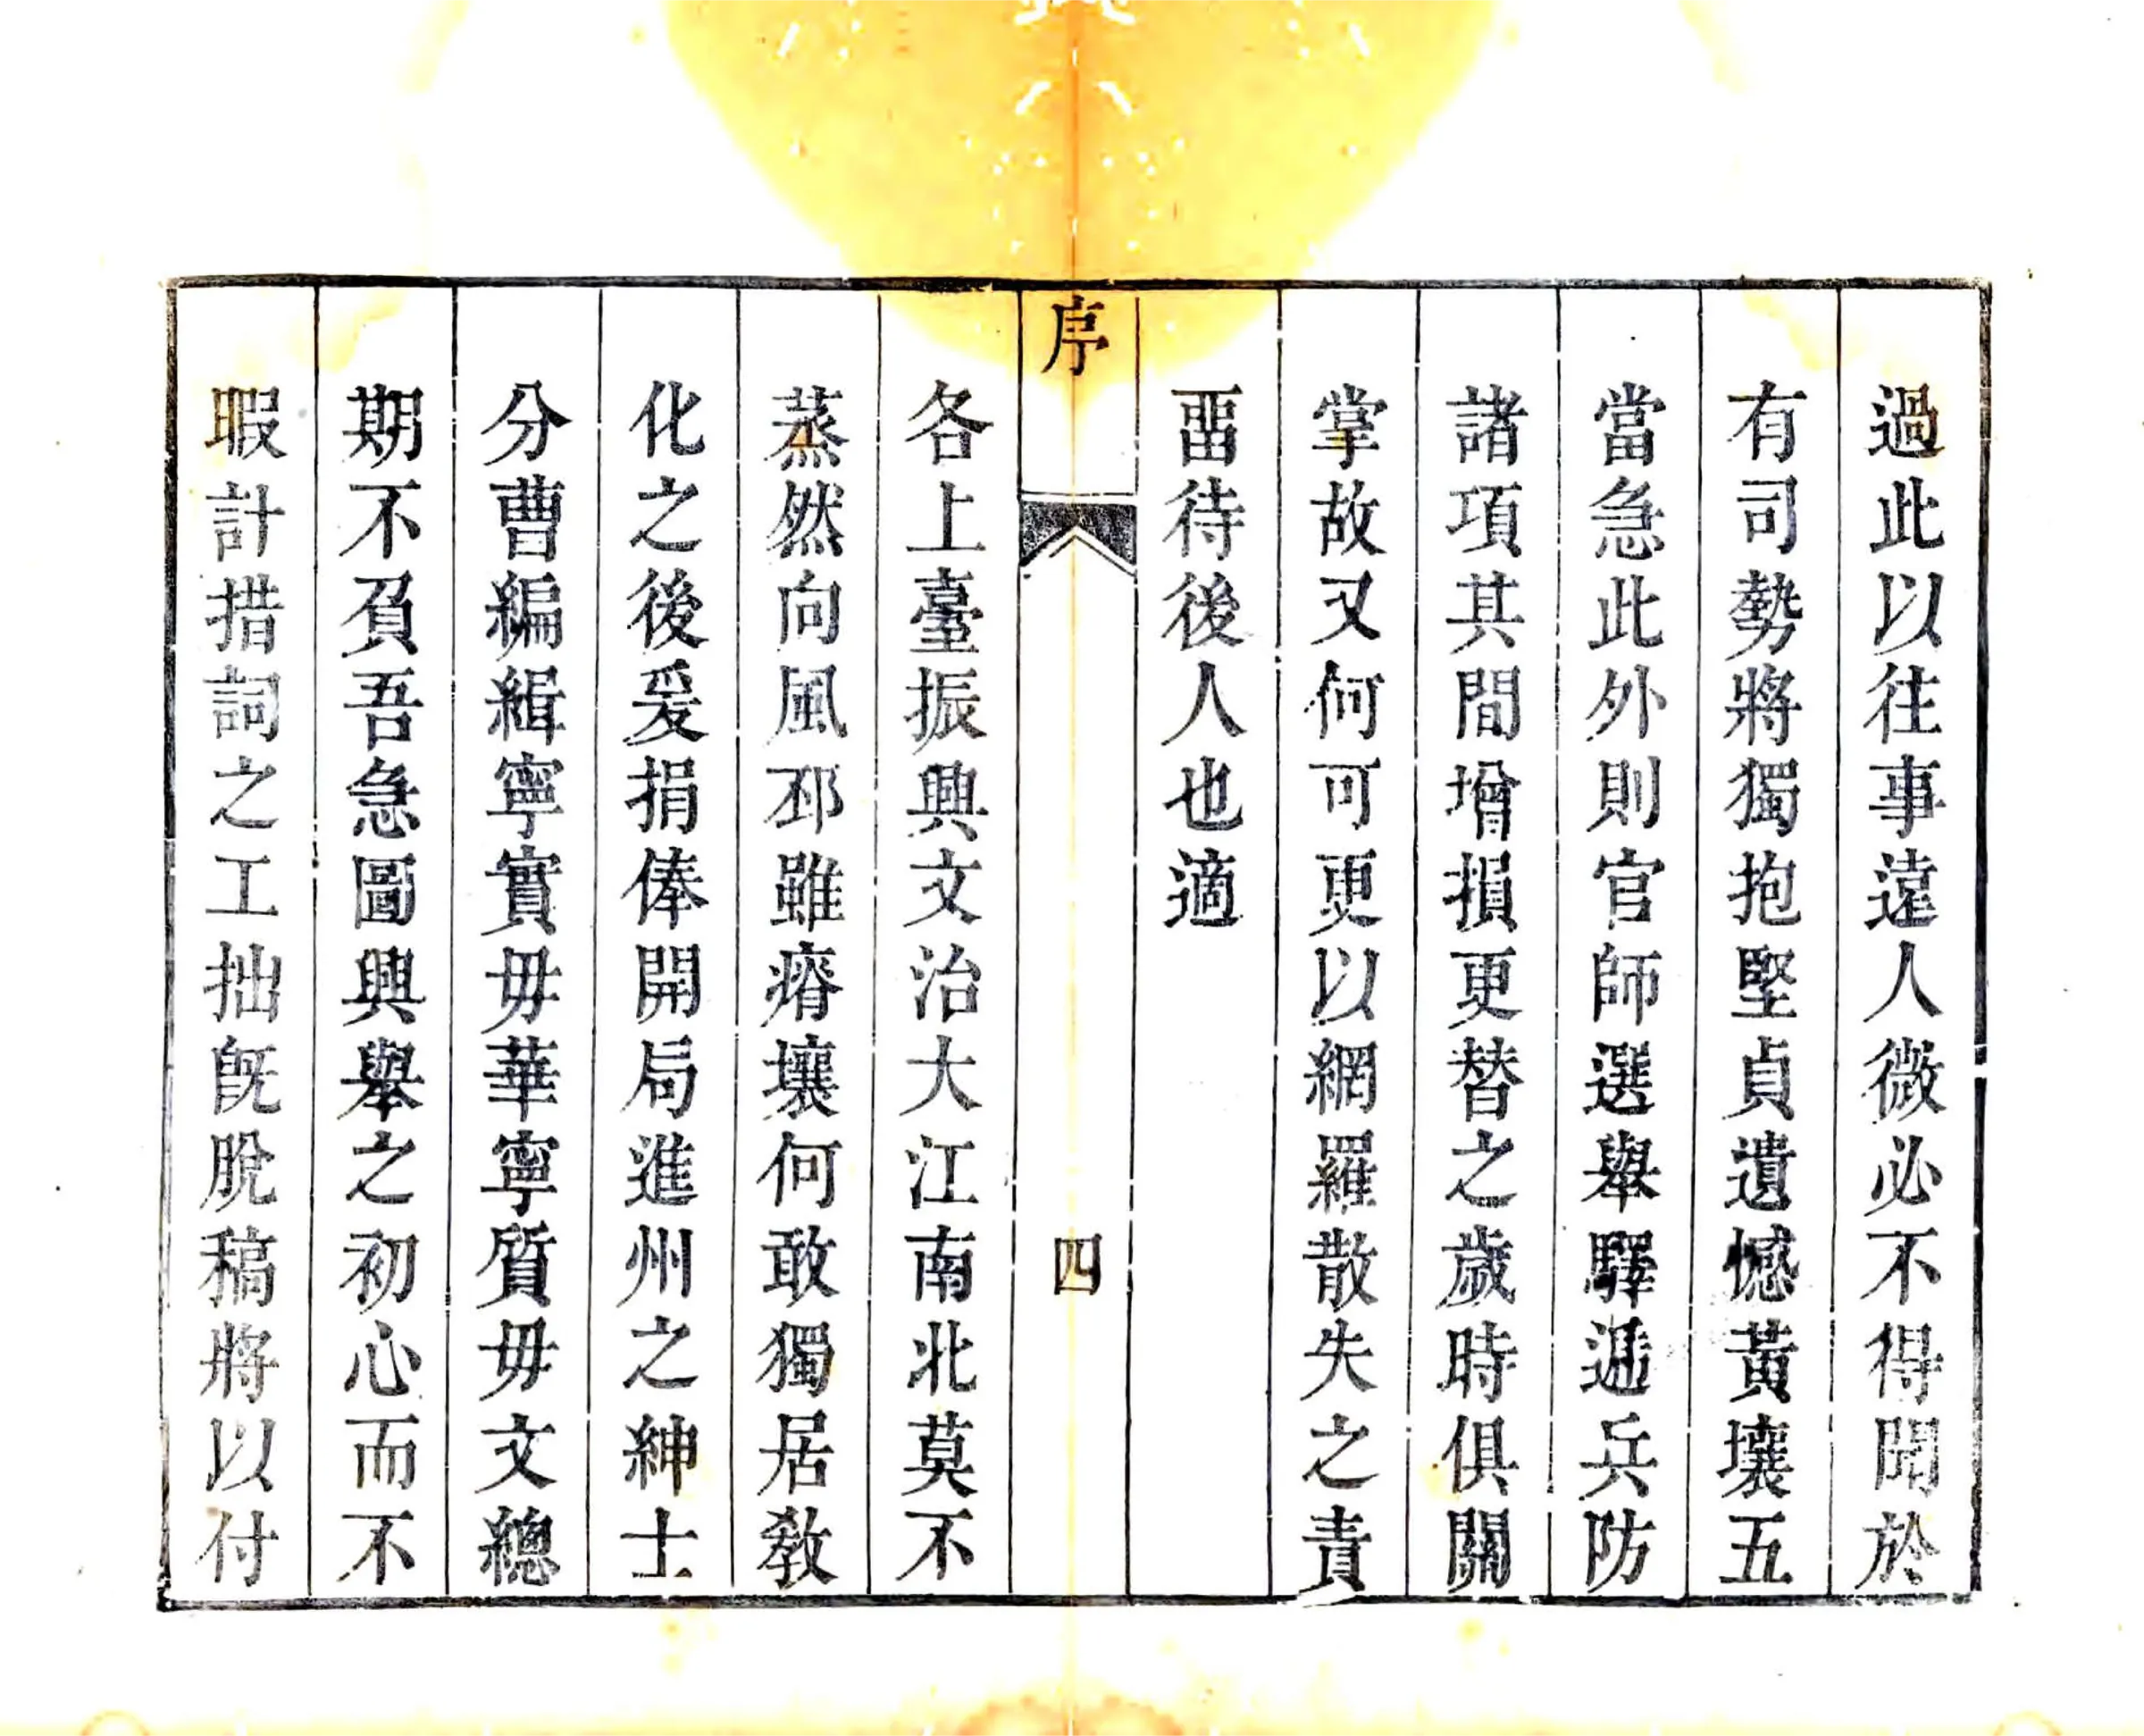 過此以往事遠人微必不得聞於
有司勢將獨抱堅貞遺憾黃壤五
當急此外則官師選舉驛遞兵防
諸項其間增損更替之歲時俱關
掌故又何可更以網羅散失之責
畱待後人也適
序
四
各上臺振興文治大江南北莫不
蒸然向風邳雖瘠壤何敢獨居敎
化之後爰捐俸開局進州之紳士
分曹編緝寧實毋華寧質毋文總
期不負吾急圖興舉之初心而不
暇計措詞之工拙旣脫稿將以付